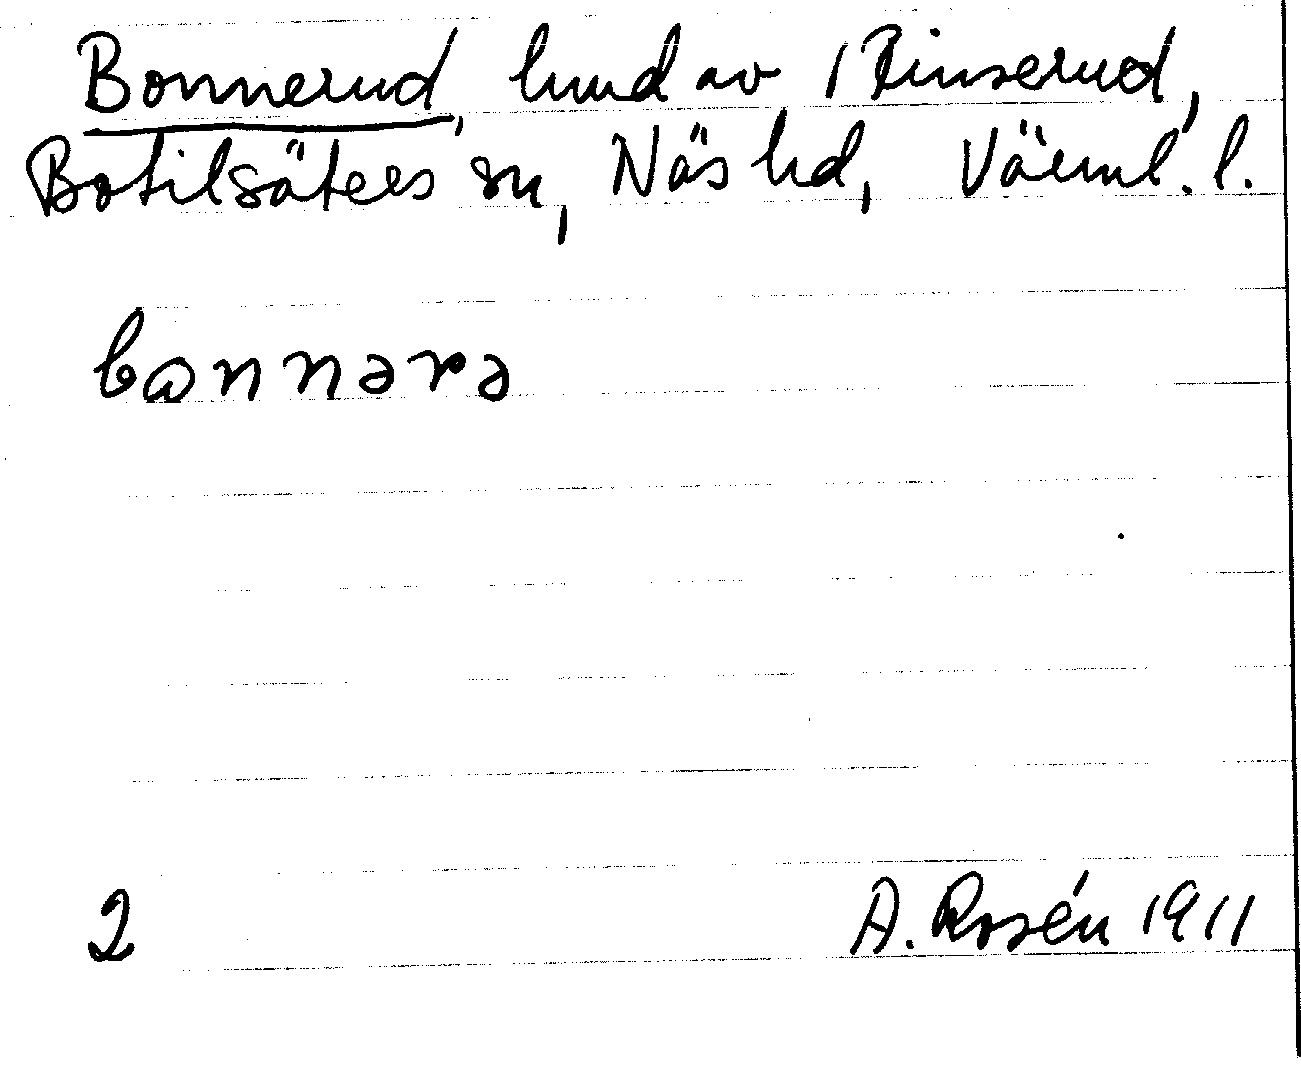 Bonnerud, hmd av 1 Rinserud,
Botilsäters sn, Näs hd, Värml. l.
bonnərə
2 A. Rosén 1911